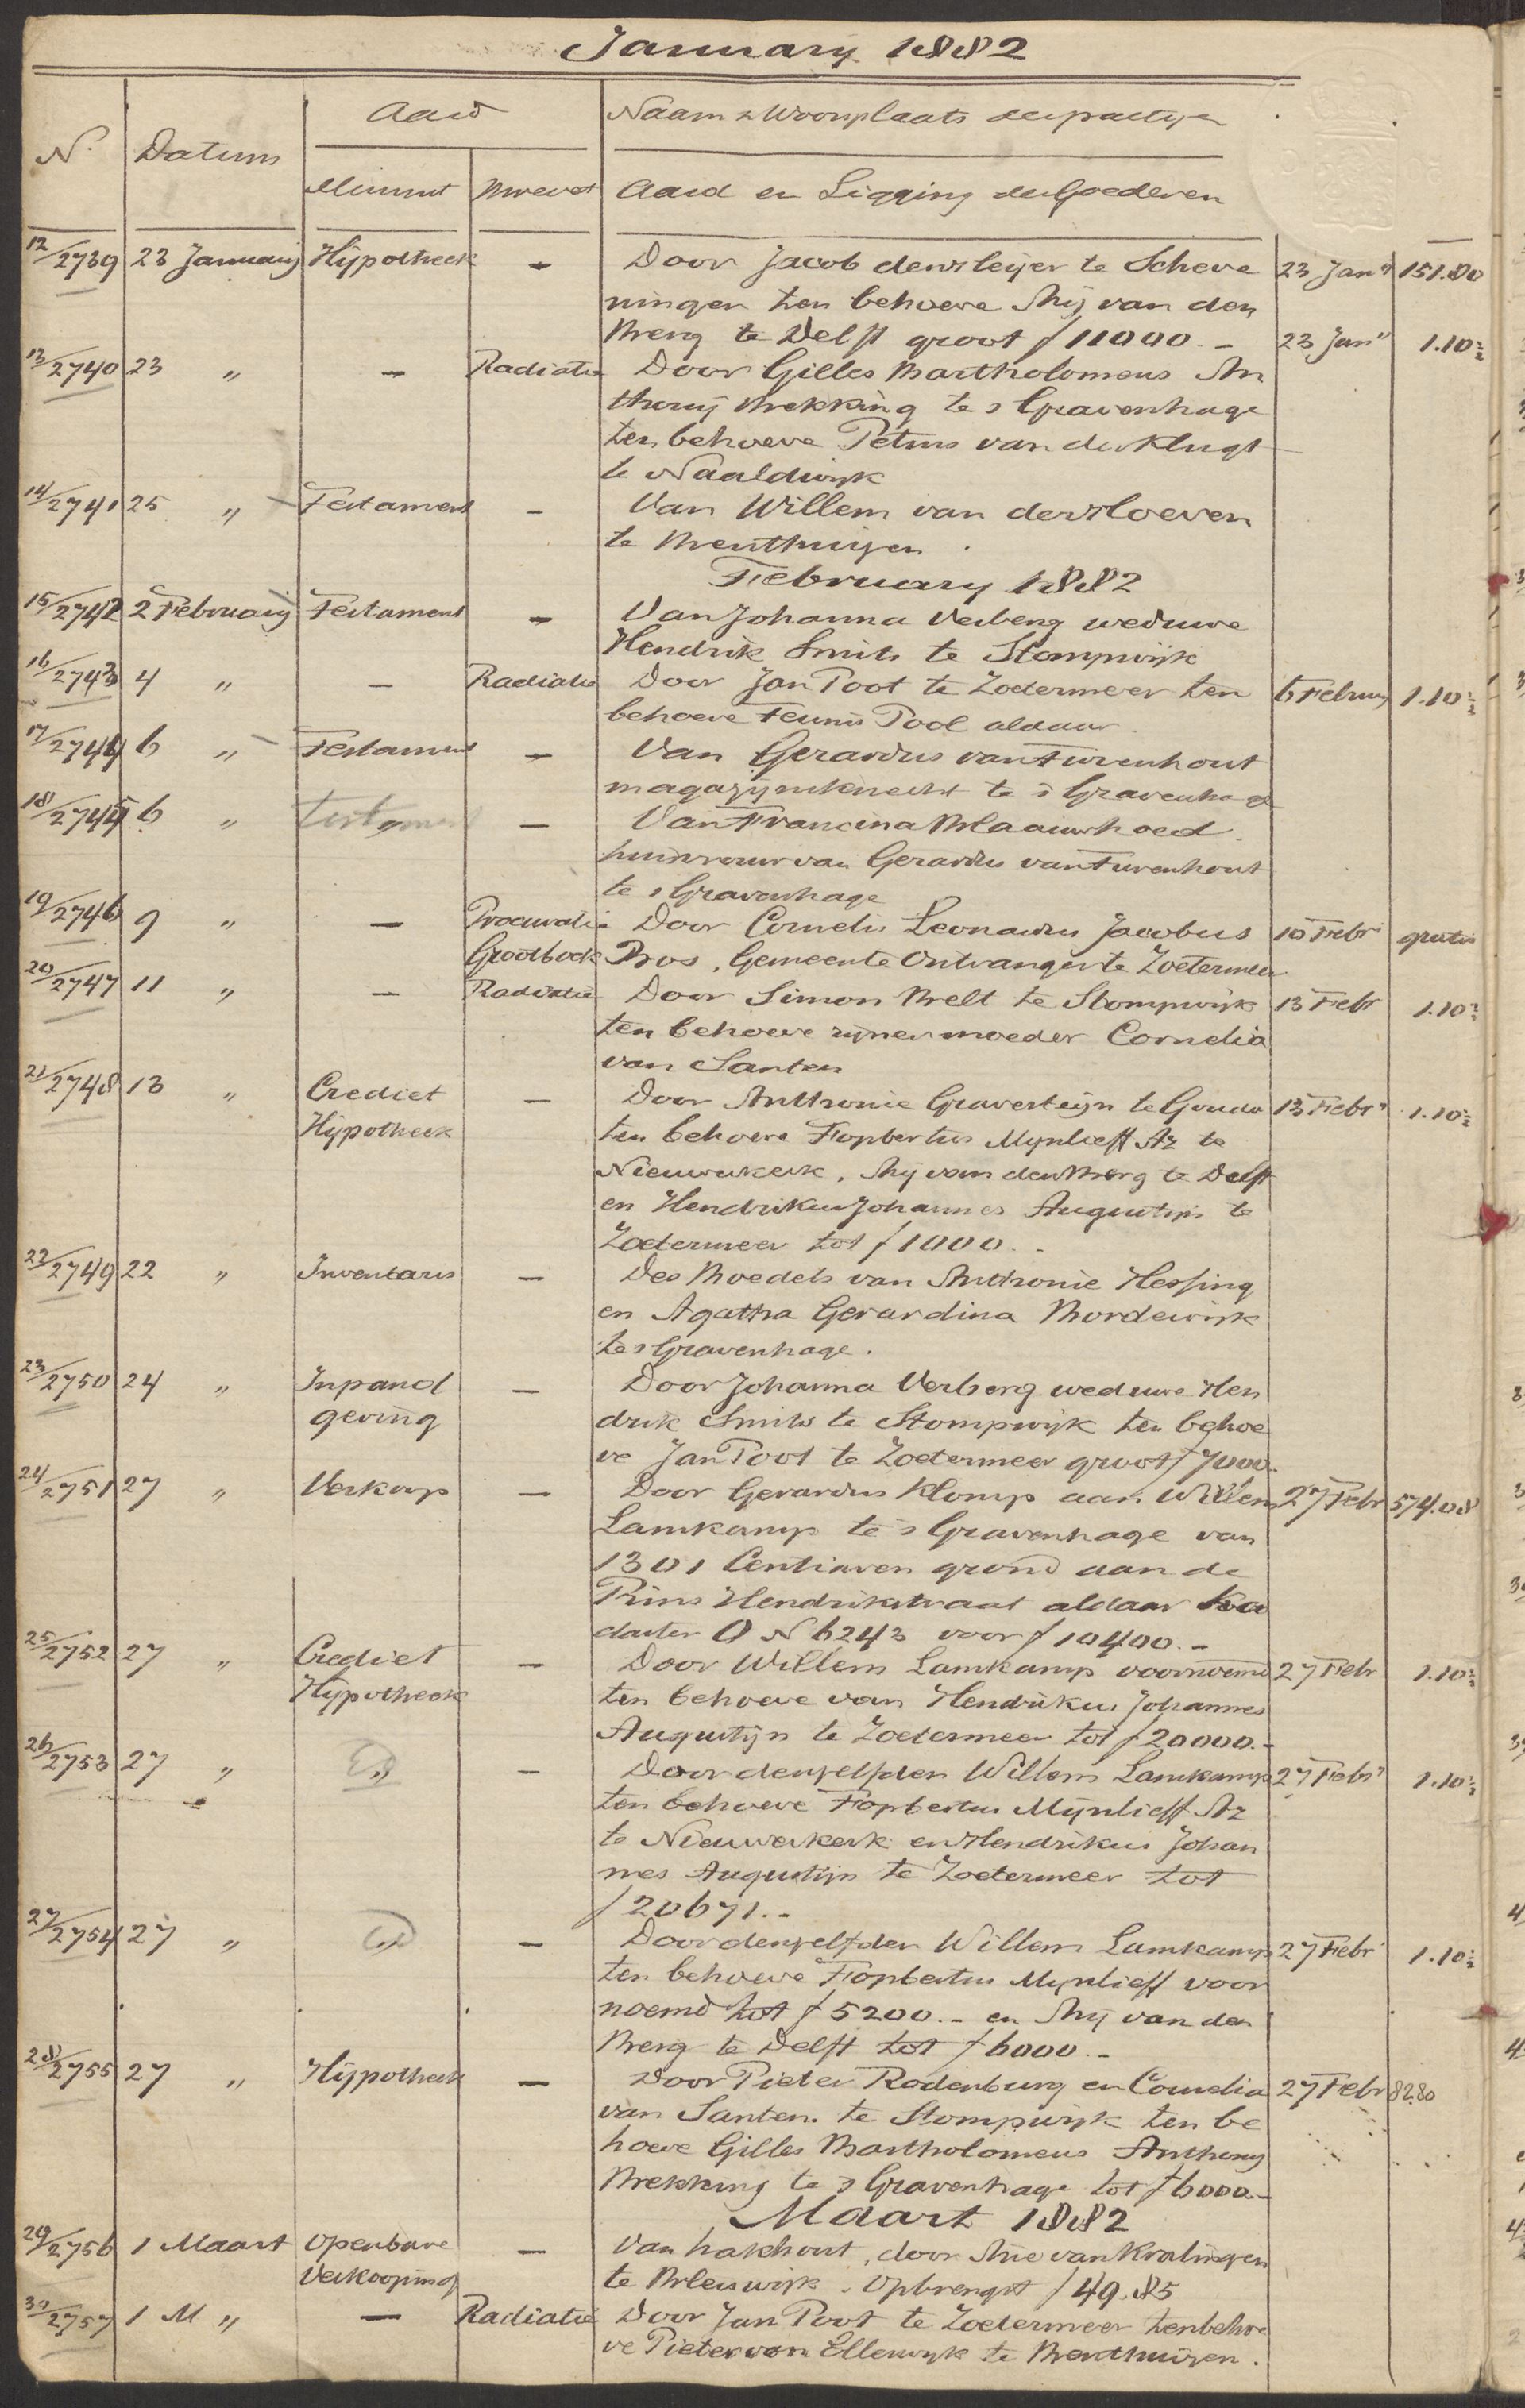 January 1882
N. Datum Aard Naam & Woonplaats der partyen
Minuut Brevet Aard en Ligging der Goederen
12/2739 23 January Hypotheek - Door Jacob den Heijer te Scheve 23 Jan" 151.80
ningen ten behoeve Arij van den
Berg te Delft groot f 11000.- 23 Jan" 1.10½
13/2740 23 " - Radiatie Door Gilles Bartholomeus An
thonij Brekking te s Gravenhage
ten behoeve Petrus van der Klugt
te Naaldwijk
14/2741 25 " Testament - Van Willem van der Hoeven
te Benthuizen.
February 1882
15/2742 2 February Testament - Van Johanna Verberg weduwe
Hendrik Smits te Stompwijk
16/2743 4 " - Radiatie Door Jan Poot te Zoetermeer ten 6 Februy 1.10½
behoeve Teunis Pool aldaar.
17/2744 6 " Testament - Van Gerardus van Turenhout
magazijnsknecht te s Gravenhage
18/2745 6 " Testament - Van Francina Blaauwhoed
huisvrouw van Gerardus van Turenhout
te s Gravenhage
19/2746 9 " - Procuratie Door Cornelis Leonardus Jacobus 10 Febr gratis
Grootboek Bos, Gemeente Ontvanger te Zoetermeer
20/2747 11 " - Radiatie Door Simon Belt te Stompwijk 13 Febr 1.10½
ten behoeve zijner moeder Cornelia
van Santen
21/2748 13 " Crediet - Door Anthonie Gravesteijn te Gouda 13 Febr 1.10½
Hypotheek ten behoeve Fopbertus Mijnlieff Az te
Nieuwerkerk, Arij van den Berg te Delft
en Hendrikus Johannes Augustijn te
Zoetermeer tot f 1000.-
22/2749 22 " Inventaris - Des Boedels van Anthonie Hessing
en Agatha Gerardina Bordewijk
te s Gravenhage.
23/2750 24 " Inpand - Door Johanna Verberg weduwe Hen
geving drik Smits te Stompwijk ten behoe
ve Jan Poot te Zoetermeer groot f 7000.
24/2751 27 " Verkoop - Door Gerardus Klomp aan Willem 27 Febr 574.08
Lamkamp te s Gravenhage van
1301 Centiaren grond aan de
Prins Hendrikstraat aldaar Ka
daster O N 6243 voor f 10400.-
25/2752 27 " Crediet - Door Willem Lamkamp voornoemd 27 Febr 1.10½
Hypotheek ten behoeve van Hendrikus Johannes
Augustijn te Zoetermeer tot f 20000.-
26/2753 27 " " - Door denzelfden Willem Lamkamp 27 Febr 1.10½
ten behoeve Fopbertus Mijnlieff Az
te Nieuwerkerk en Hendrikus Johan
nes Augustijn te Zoetermeer tot
f 20671.-
27/2754 27 " " - Door denzelfden Willem Lamkamp 27 Febr 1.10½
ten behoeve Fopbertus Mijnlieff voor
noemd tot f 5200.- en Arij van den
Berg te Delft tot f 6000.-
28/2755 27 " Hypotheek - Door Pieter Rodenburg en Cornelia 27 Febr 82.80
van Santen te Stompwijk ten be
hoeve Gilles Bartholomeus Anthony
Brekking te s Gravenhage tot f 6000.-
Maart 1882
29/2756 1 Maart Openbare - Van hakhout, door Arie van Kralingen
Verkooping te Bleiswijk. Opbrengst f 49.85
30/2757 1 M " - Radiatie Door Jan Poot te Zoetermeer ten behoe
ve Pieter van Ellenwijk te Benthuizen.